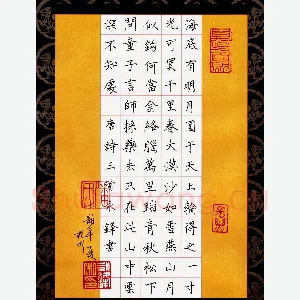 海底有明月圓于天上輪得之一寸
光可買千里春大漠沙如雪燕山月
似鉤何當金絡腦萬里踏青秋松下
問童子言師採藥去只在此山中雲
深不知處 唐詩三首